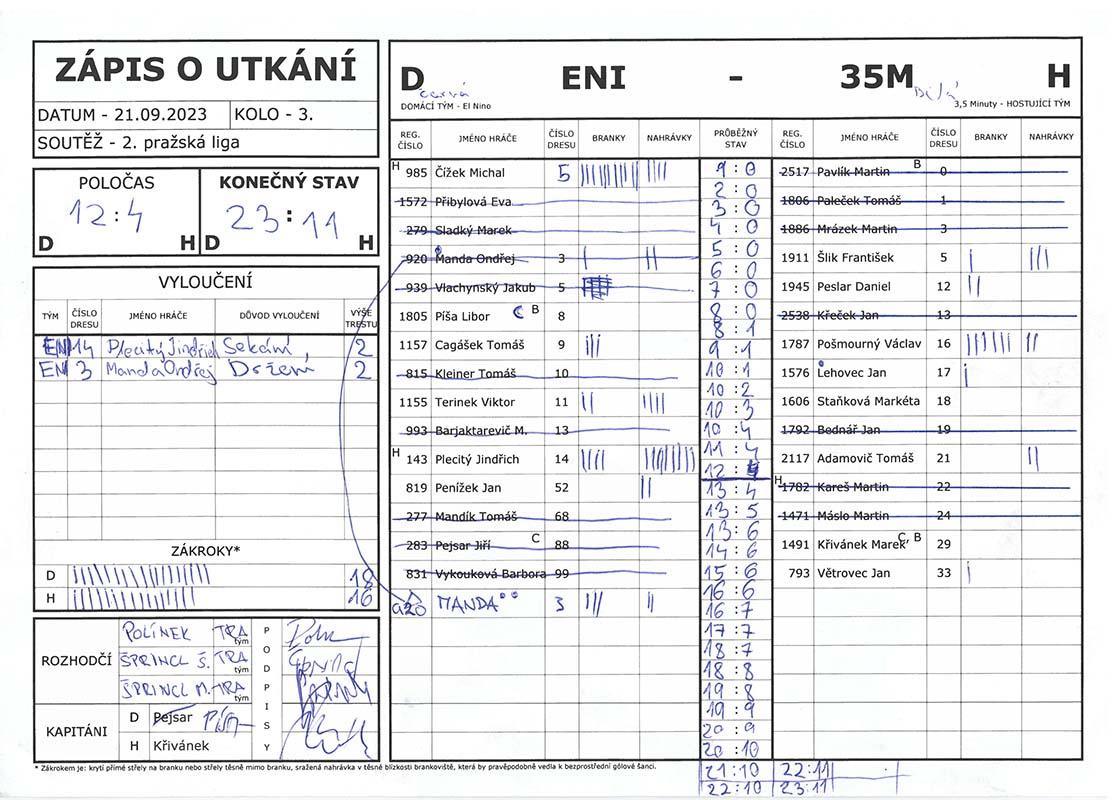 ZÁPIS O UTKÁNÍ
DATUM - 21.09.2023 KOLO - 3.
SOUTĚŽ - 2. pražská liga
POLOČAS KONEČNÝ STAV
12:4 23:11
D H D H
VYLOUČENÍ
TÝM ČÍSLO DRESU JMÉNO HRÁČE DŮVOD VYLOUČENÍ VÝŠE TRESTU
EN 14 Plecitý Jindřich Sekání 2
EN 3 Manda Ondřej Držení 2
ZÁKROKY*
D 18
H 16
ROZHODČÍ
POLÍNEK TRA tým
ŠPRINCL Š. TRA tým
ŠPRINCL M. TRA tým
PODPISY
KAPITÁNI
D Pejsar
H Křivánek
D ENI - 35M H
DOMÁCÍ TÝM - El Nino 3,5 Minuty - HOSTUJÍCÍ TÝM
Bílá
REG. ČÍSLO JMÉNO HRÁČE ČÍSLO DRESU BRANKY NAHRÁVKY PRŮBĚŽNÝ STAV REG. ČÍSLO JMÉNO HRÁČE ČÍSLO DRESU BRANKY NAHRÁVKY
H 985 Čížek Michal 5
1572 Přibylová Eva
279 Sladký Marek
920 Manda Ondřej 3
939 Vlachynský Jakub 5
1805 Píša Libor C B 8
1157 Cagášek Tomáš 9
815 Kleiner Tomáš 10
1155 Terinek Viktor 11
993 Barjaktarevič M. 13
H 143 Plecitý Jindřich 14
819 Penížek Jan 52
277 Mandík Tomáš 68
283 Pejsar Jiří C 88
831 Vykouková Barbora 99
920 MANDA 3
1:0
2:0
3:0
4:0
5:0
6:0
7:0
8:0
8:1
9:1
10:1
10:2
10:3
10:4
11:4
12:4
13:4
13:5
13:6
14:6
15:6
16:6
16:7
17:7
18:7
18:8
19:8
19:9
20:9
20:10
21:10 22:11
22:10 23:11
2517 Pavlík Martin B 0
1806 Paleček Tomáš 1
1886 Mrázek Martin 3
1911 Šlik František 5
1945 Peslar Daniel 12
2538 Křeček Jan 13
1787 Pošmourný Václav 16
1576 Lehovec Jan 17
1606 Staňková Markéta 18
1792 Bednář Jan 19
2117 Adamovič Tomáš 21
H 1782 Kareš Martin 22
1471 Máslo Martin 24
1491 Křivánek Marek C, B 29
793 Větrovec Jan 33
* Zákrokem je: krytí přímé střely na branku nebo střely těsně mimo branku, sražená nahrávka v těsné blízkosti brankoviště, která by pravěpodobně vedla k bezprostřední gólové šanci.